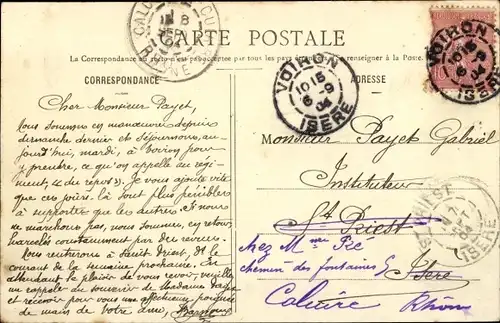 CARTE POSTALE
La Correspondance au recto n'est pas acceptée par tous les pays étrangers à la Poste.
CORRESPONDANCE
ADRESSE
VOIRON
10 15
6 - 9
04
ISÈRE
VOIRON
10 15
6 - 9
04
ISÈRE
Cher Monsieur Payet,
Nous sommes en manœuvre depuis
dimanche dernier et séjournons, au-
jourd'hui, mardi, à Voiron pour
y prendre, ce qu'on appelle au régi-
ment « du repos ». Je vous ajoute vite
que ces jours là sont plus pénibles
à supporter que les autres. Si nous
ne marchons pas, nous sommes, en retour,
harcelés constamment par des revues.
Nous rentrerons à Saint Priest, dans le
courant de la semaine prochaine. En
attendant le plaisir de vous revoir, veuillez
un rappel du souvenir de Madame
et recevoir pour vous une affectueuse poignée
de main de votre ami,
Monsieur Payet Gabriel
Instituteur
St Priest
Isère
chez Mme
chemin des fontaines
Caluire
Rhône